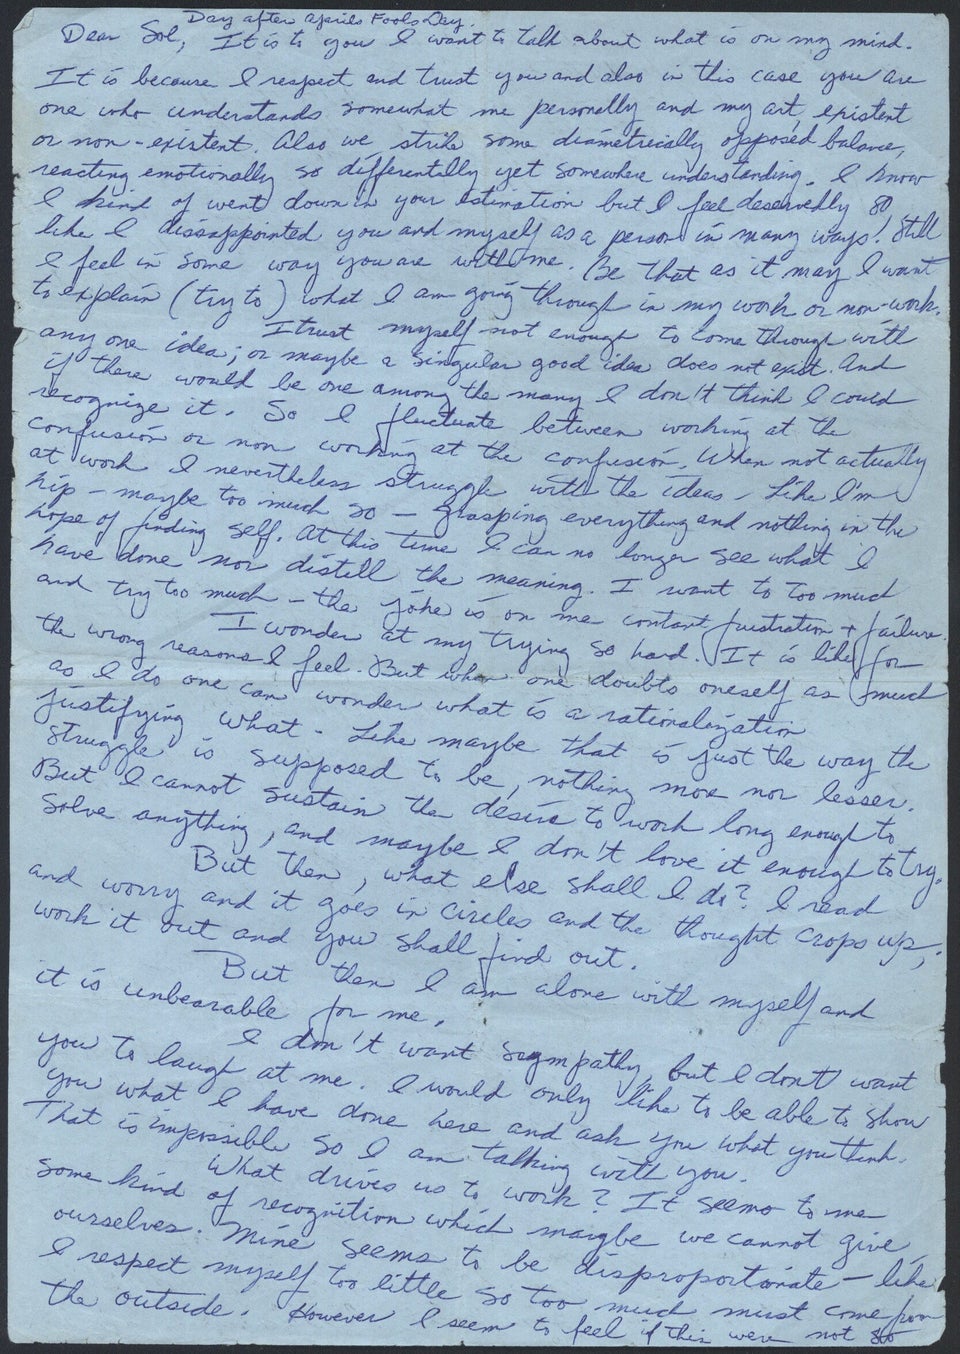 Day after Aprils Fools Day.
Dear Sol, It is to you I want to talk about what is on my mind.
It is because I respect and trust you and also in this case you are
one who understands somewhat me personally and my art, existent
or non-existent. Also we strike some diametrically opposed balance,
reacting emotionally so differently yet somewhere understanding. I know
I kind of went down in your estimation but I feel deservedly so,
like I dissappointed you and myself as a person in many ways! Still
I feel in some way you are with me. Be that as it may I want
to explain (try to) what I am going through in my work or non-work.
I trust myself not enough to come through with
any one idea; or maybe a singular good idea does not exist. And
if there would be one among the many I don't think I could
recognize it. So I fluctuate between working at the
confusion or non working at the confusion. When not actually
at work I nevertheless struggle with the ideas. Like I'm
hip - maybe too much so - grasping everything and nothing in the
hope of finding self. At this time I can no longer see what I
have done nor distill the meaning. I want to too much
and try too much - the joke is on me contant frustration + failure.
I wonder at my trying so hard. It is like for
the wrong reasons I feel. But when one doubts oneself as much
as I do one can wonder what is a rationalization
justifying what. Like maybe that is just the way the
struggle is supposed to be, nothing more nor lesser.
But I cannot sustain the desire to work long enough to
solve anything, and maybe I don't love it enough to try.
But then, what else shall I do? I read
and worry and it goes in circles and the thought crops up;
work it out and you shall find out.
But then I am alone with myself and
it is unbearable for me.
I don't want sympathy, but I don't want
you to laugh at me. I would only like to be able to show
you what I have done here and ask you what you think.
That is impossible so I am talking with you.
What drives us to work? It seems to me
some kind of recognition which maybe we cannot give
ourselves. Mine seems to be disproportionate - like
I respect myself too little so too much must come from
the outside. However I seem to feel if this were not so